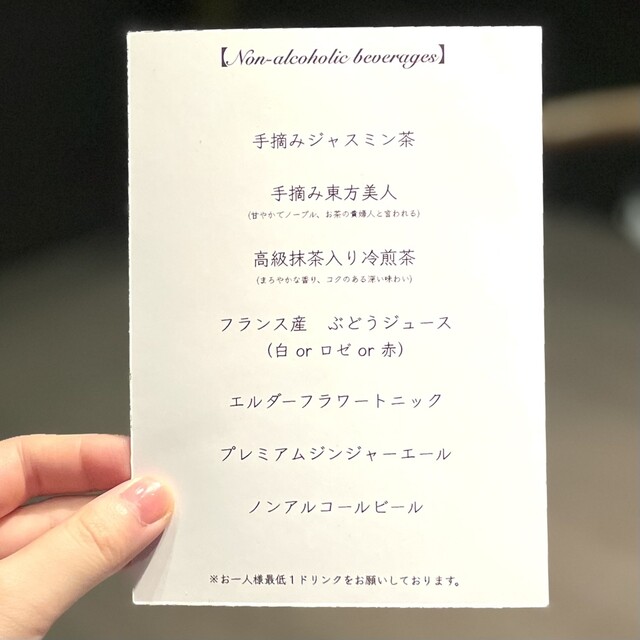 【Non-alcoholic beverages】
手摘みジャスミン茶
手摘み東方美人
(甘やかでノーブル、お茶の貴婦人と言われる)
高級抹茶入り冷煎茶
(まろやかな香り、コクのある深い味わい)
フランス産　ぶどうジュース
(白 or ロゼ or 赤)
エルダーフラワートニック
プレミアムジンジャーエール
ノンアルコールビール
※お一人様最低1ドリンクをお願いしております。